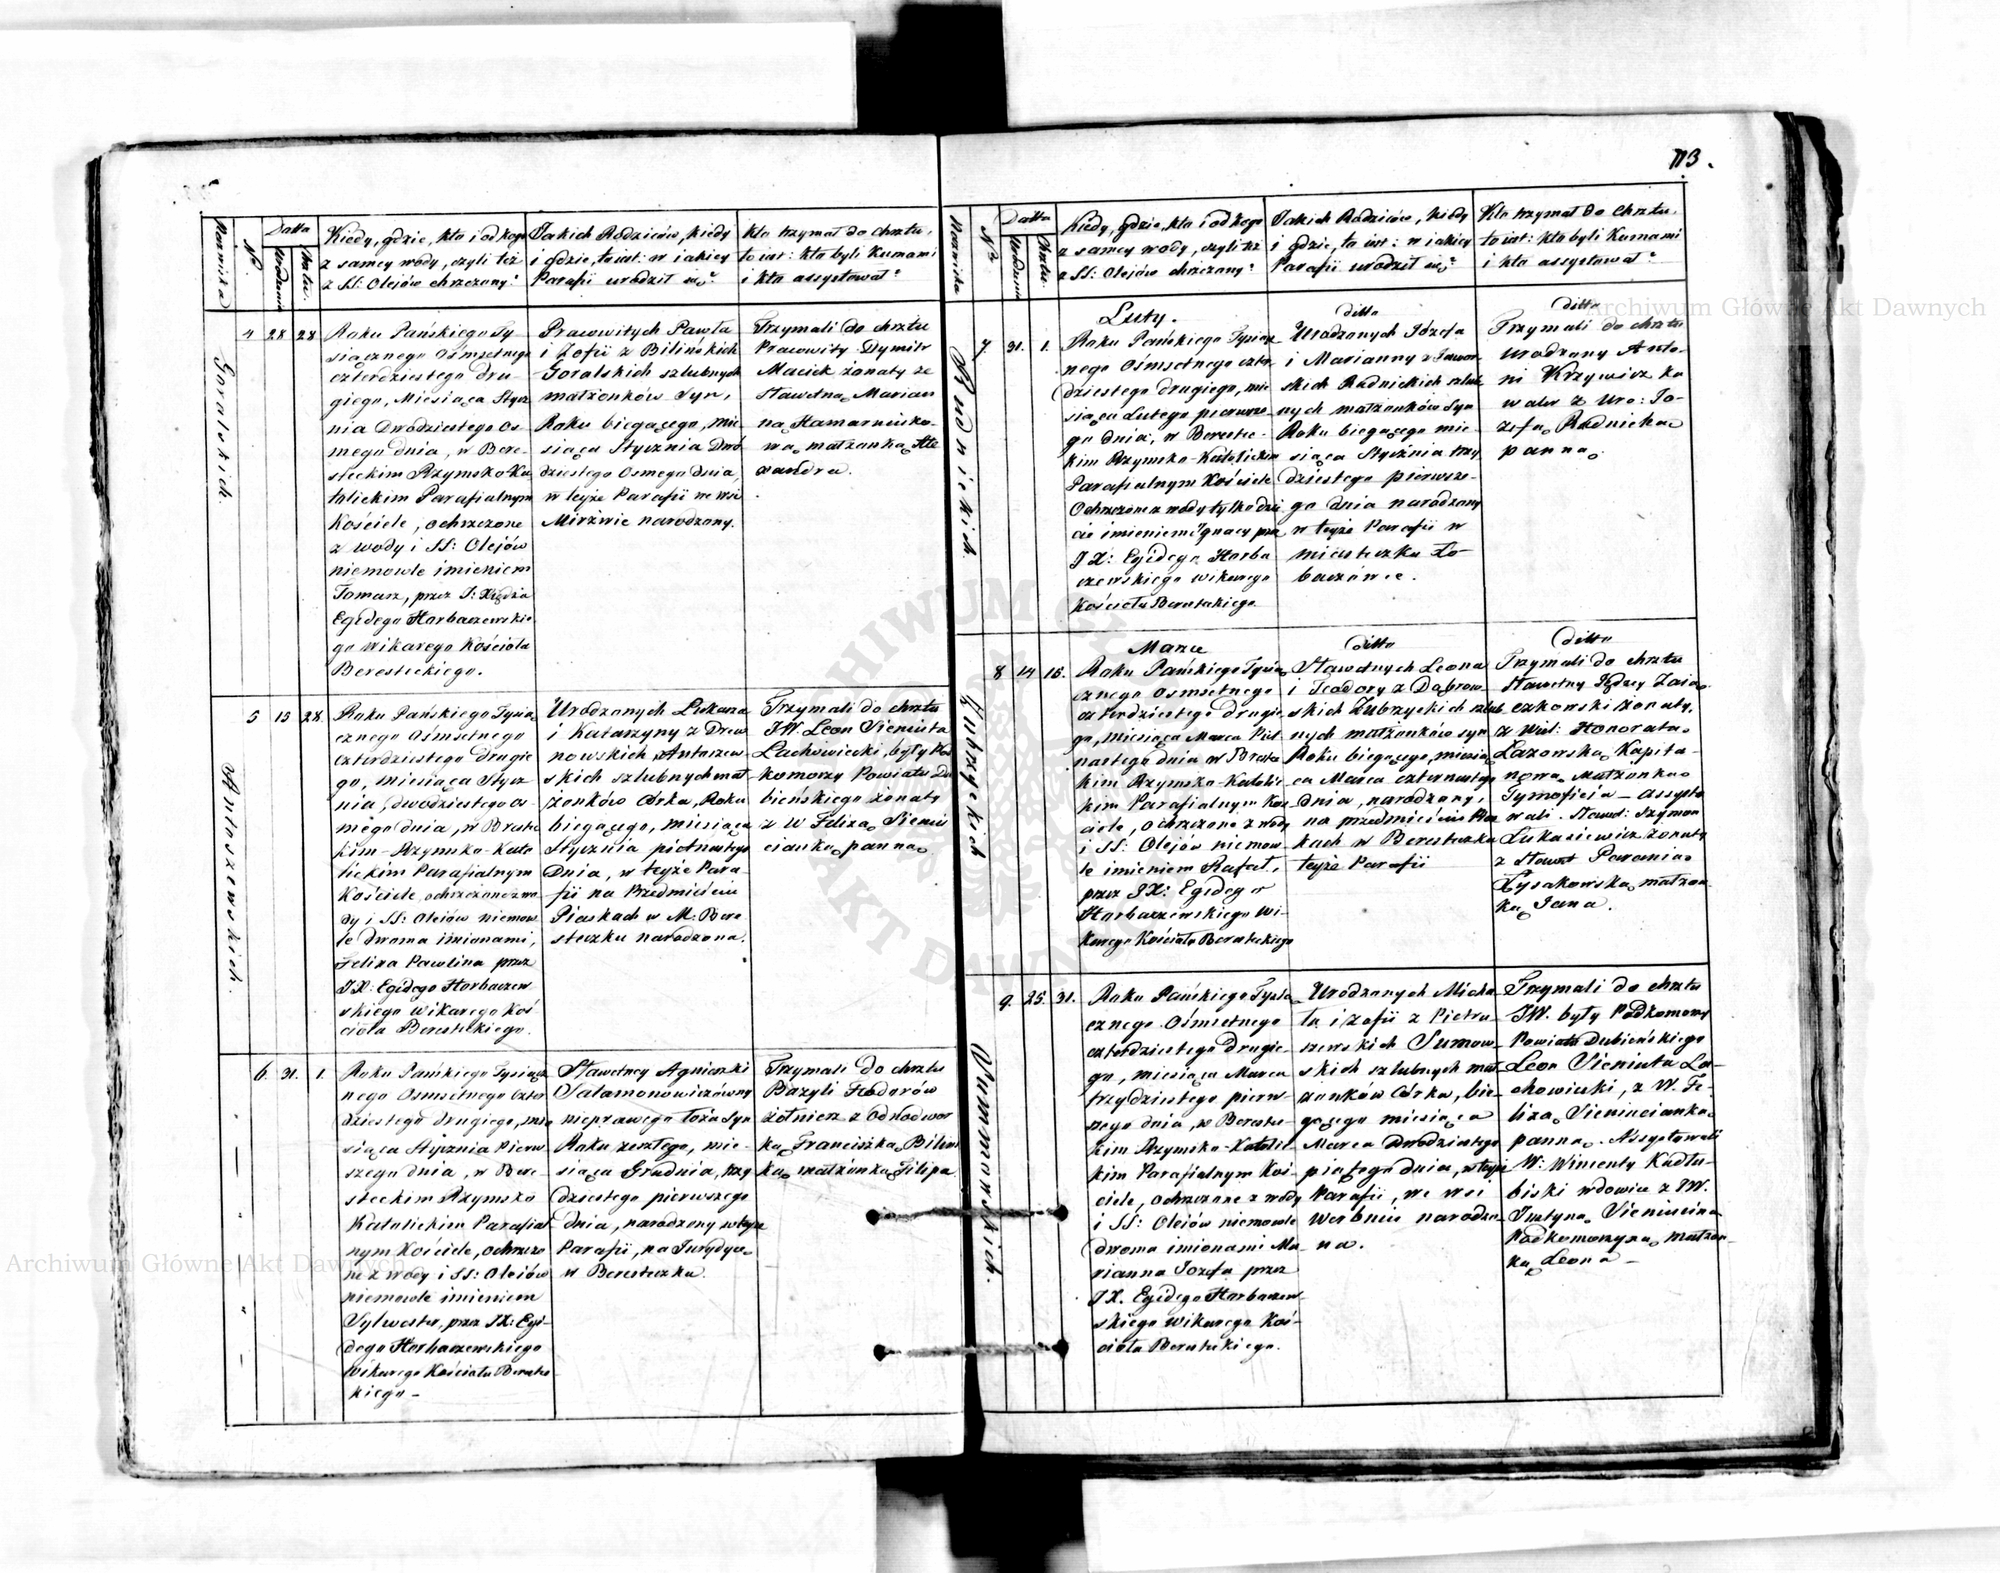 113.
Nazwiska
№
Datta
Urodzenia
Chrztu.
Kiedy, gdzie, kto i od kogo
z samey wody, czyli też
z SS: Olejów chrzczony?
Jakich Rodziców, kiedy
i gdzie, to iest: w iakiey
Parafii urodził się?
Kto trzymał do chrztu,
to iest: kto byli Kumami
i kto assystował?
Goralskich
4
28
28
Roku Pańskiego Ty-
siącznego Ośmsetnego
czterdziestego dru-
giego, Miesiąca Stycz
nia Dwudziestego Os-
mego dnia, w Bere-
steckim Rzymsko-Ka
tolickim Parafialnym
Kościele, ochrzczone
z wody i SS: Olejów
niemowle imieniem
Tomasz, przez J: Xiędza
Egidego Horbaczewskie-
go wikarego Kościoła
Beresteckiego.
Pracowitych Pawła
i Zofii z Bilińskich
Goralskich szlubnych
małżonków Syn,
Roku biegącego, mie-
siąca Stycznia Dwó
dziestego Osmego Dnia,
w teyże Parafii we wsi
Mirżwie narodzony.
Trzymali do chrztu
Pracowity Dymitr
Maciek żonaty ze
Sławetną Marian
ną Hamarniczko-
wą, małżonką Ale
xandra.
Antoszewskich.
5
15
28.
Roku Pańskiego Tysią
cznego Ośmsetnego
Czterdziestego Drugie
go, miesiąca Stycz
nia, dwudziestego os-
mego dnia, w Bereste
kim-Rzymsko-Kato
lickim Parafialnym
Kościele, ochrzczone z wo
dy i SS: Olejów niemow
le dwoma imionami,
Felixa Pawlina przez
JX: Egidego Horbaczew
skiego Wikarego Koś
cioła Beresteckiego.
Urodzonych Łukasza
i Katarzyny z Drew
nowskich Antoszew-
skich szlubnych mał
żonków Córka, Roku
biegącego, miesiąca
Stycznia piętnastego
Dnia, w teyże Para-
fii na Przedmieściu
Piaskach w M: Bere
steczku narodzona.
Trzymali do chrztu
JW. Leon Sieniuta
Lachowiecki, były Pod
komorzy Powiatu Du
bieńskiego żonaty
z W Felixą Sieniu
cianką, panną.
6.
31.
1.
Roku Pańskiego Tysiącz
nego Osmsetnego Czter
dziestego drugiego, mie
siąca Stycznia Pierw
szego dnia, w Bere-
steckim Rzymsko
Katolickim Parafial
nym Kościele, ochrzczo
ne z wody i SS: Olejów
niemowle imieniem
Sylwester, przez JX: Egi-
dego Horbaczewskiego
Wikarego Kościoła Bereste
kiego-
Sławetney Agnieszki
Salamonowiczówny
nieprawego łoża Syn
Roku zeszłego, mie-
siąca Grudnia, trzy
dziestego pierwszego
dnia, narodzony w teyże
Parafii, na Jurydyce
w Beresteczku.
Trzymali do chrztu
Bazyli Fedorów
żołnierz z Odnodwor
ką, Franciszką Bilins
ką, małżonką Filipa.
Nazwiska
№
Datta
Urodzenia
Chrztu.
Kiedy, gdzie, kto i od kogo
z samey wody, czyli też
z SS: Olejów chrzczony?
Jakich Rodziców, kiedy
i gdzie, to iest: w iakiey
Parafii urodził się?
Kto trzymał do Chrztu,
to iest: kto byli Kumami
i kto assystował?
Rudnickich
Luty.
ditto
ditto
7.
31.
1.
Roku Pańskiego Tysiącz
nego Ośmsetnego czter
dziestego drugiego, mie
siąca Lutego pierwsze
go dnia, w Bereste-
kim Rzymsko-Katolickim
Parafialnym Kościele
Ochrzczone z wody tylko dzie
cie imieniem Ignacy przez
JX: Egidego Horba
czewskiego wikarego
Kościoła Beresteckiego
Urodzonych Józefa
i Marianny z Jawor
skich Rudnickich szlub
nych małżonków Syn
Roku biegącego mie-
siąca Stycznia trzy
dziestego pierwsze-
go dnia narodzony
w teyże Parafii w
miasteczku Ło-
baczówce.
Trzymali do chrztu
urodzony Anto-
ni Krzywicz ka
waler z Uro: Jó-
zefą Rudnicką
panną.
Zubrzyckich
Marzec
ditto
ditto
8
14
15.
Roku Pańskiego Tysią
cznego osmsetnego
czterdziestego drugie
go, miesiąca Marca Pięt
nastego dnia w Bereste
kim Rzymsko-Katolic
kim Parafialnym Koś
ciele, ochrzczone z wody
i SS: Olejów niemow
le imieniem Rafał,
przez JX: Egidego
Horbaczewskiego Wi-
karego Kościoła Beresteckiego
Sławetnych Leona
i Teodory z Dąbrow-
skich Zubrzyckich szlub
nych małżonków syn
Roku biegącego, miesią
ca Marca czternastego
dnia, narodzony,
na przedmieściu Pias
kach w Beresteczku
teyże Parafii
Trzymali do chrztu
Sławetny Jędrzey Zają-
czkowski żonaty,
z Wiel: Honoratą
Łazowską, Kapita-
nową, Małżonką
Tymofieia- Assysto
wali. Sławet: Szymon
Łukasiewicz żonaty
z Sławet Paranią
Łysakowską, małżon
ką Jana.
Summowskich.
9.
25.
31.
Roku Pańskiego Tysią
cznego Ośmsetnego
czterdziestego drugie-
go, miesiąca Marca
trzydziestego pierw-
szego dnia, w Bereste-
kim Rzymsko-Katolic-
kim Parafialnym Koś-
ciele, ochrzczone z wody
i SS: Olejów niemowle
dwoma imionami Ma-
rianna Józefa przez
JX. Egidego Horbaczew-
skiego Wikarego Koś-
cioła Beresteckiego.
Urodzonych Micha
ła i Zofii z Pietru
szewskich Sumow-
skich szlubnych mał
żonków Córka, bie-
gącego miesiąca
Marca Dwudziestego
piątego dnia, w teyże
Parafii, we wsi
Werbnie narodzo-
na.
Trzymali do chrztu
JW. były Podkomorzy
Powiatu Dubieńskiego
Leon Sieniuta La-
chowiecki, z W. Fe-
lixą, Sieniucianką
panną. Assystowali
W: Wincenty Kadłu-
biski wdowiec z JW.
Justyną Sieniuciną
Podkomorzyną, małżon-
ką Leona-
Archiwum Główne Akt Dawnych
Archiwum Główne Akt Dawnych